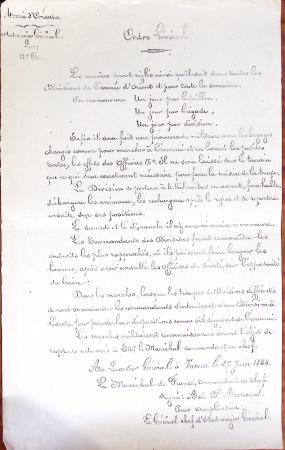 Armée d'Orient
Etat-major Général
2
N° 86.
Ordre Général.
Le service sera réglé ainsi qu'il suit dans toutes les
Divisions de l'armée d'Orient et pour toute la semaine.
En manœuvres. Un jour par bataillon,
Un jour par brigade,
Un jour par division.
Enfin il sera fait une promenade militaire avec les bagages
chargés comme pour marcher à l'ennemi et en levant les petites
tentes, les effets des Officiers &a. Il ne sera laissé sur le terrain
que ce qui sera exactement nécessaire pour faire la cuisine de la troupe.
La Division se portera à 4 kilomètres en avant, fera halte,
déchargera les animaux, les rechargera après le repos et se portera
ensuite sur ses positions.
Le samedi et le dimanche il n'y aura ni service ni manœuvre.
Les Commandants des Divisions feront reconnaître les
endroits les plus rapprochés, où ils puissent faire baigner les
hommes, après avoir consulté les Officiers de santé, sur l'opportunité
du bain.
Dans les marches, lorsque les troupes de Divisions différentes
devront se rencontrer les commandants s'entendront d'une Division à
l'autre, pour prendre leurs dispositions comme s'il s'agissait de l'ennemi.
Les marches militaires et
rapports adressés à Mr. le Maréchal commandant en chef.
Au Quartier Général à Varna le 27 juin 1854.
Le Maréchal de France, commandant en chef,
Signé: A. de St. Arnaud.
Pour ampliation
Le Général chef d'Etat-major Général.